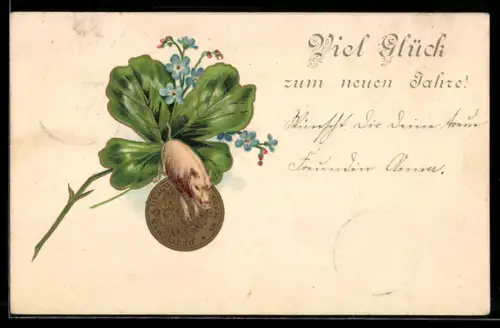 Viel Glück
zum neuen Jahre!
Wünscht Dir Deine treue
Freundin Anna.